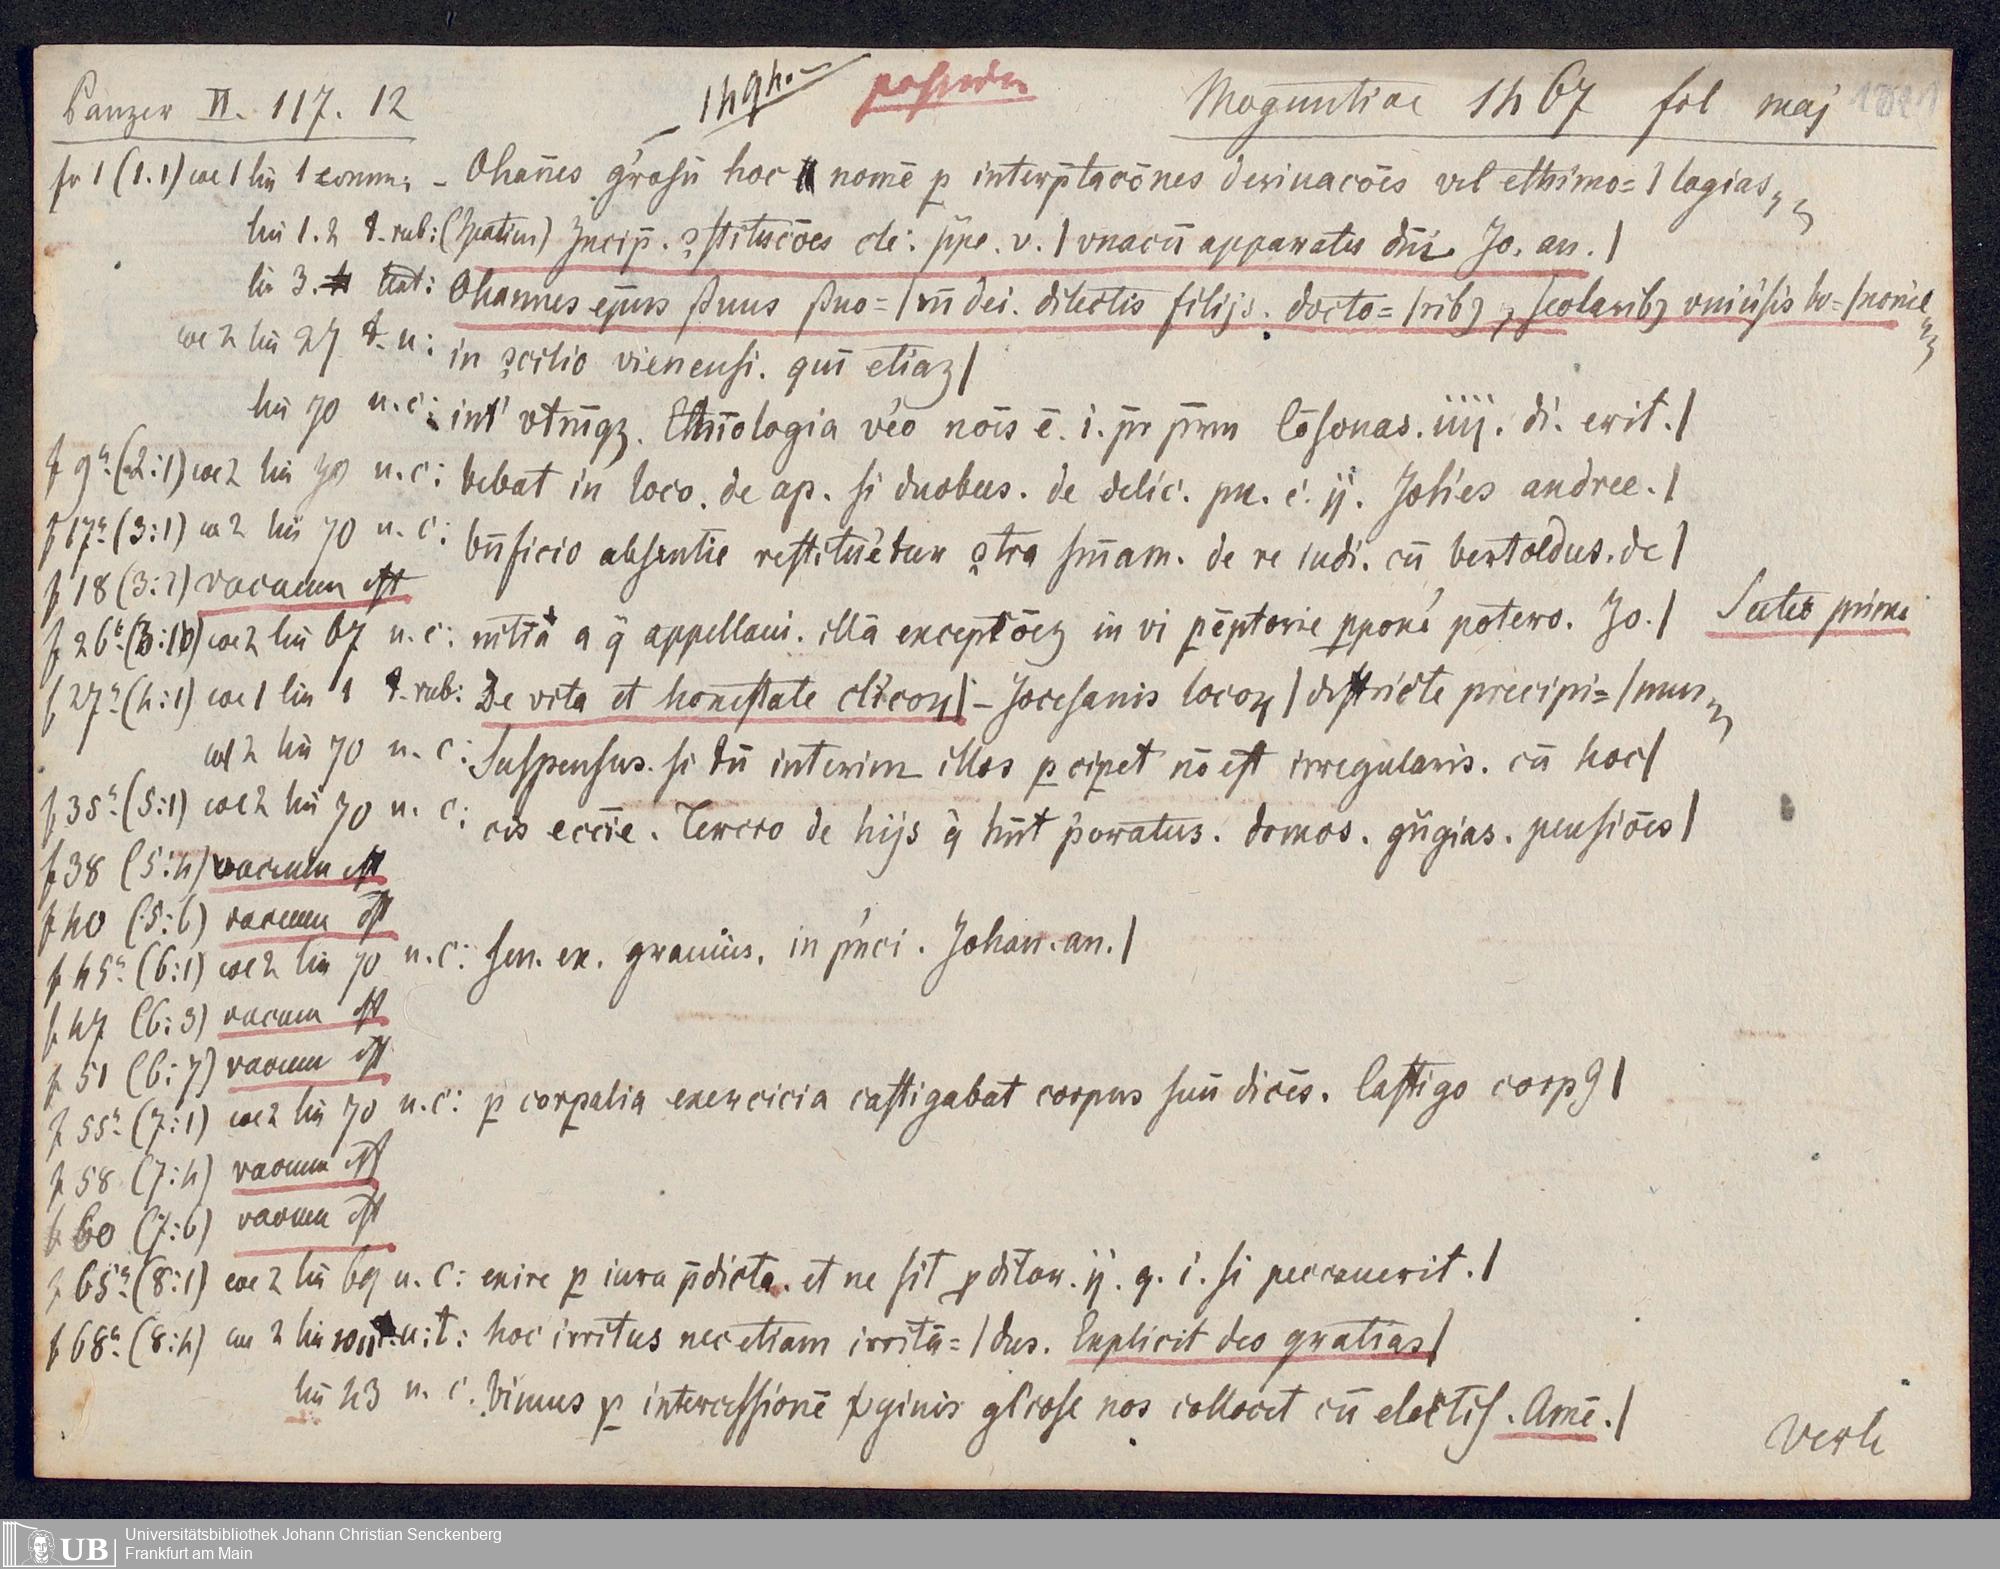 Panzer II. 117. 12 Moguntiae 1467 fol maj
fo 1 (1.1) col 1 lin 1 comm: – Ohan̄es g̾rosū hoc nomē p interp̄tacōnes deriuacōes vel ethimo= | logias
lin 1. 2 t. rub: (Spatium) Incip̄. ꝯstitucōes cle. ppe. v. | vnacū apparatu dn̄i Jo. an. |
lin 3. text: Ohannes ep̄us s̄uus s̄uo= | rū dei. dilectis filijs. docto= | ribꝫ ⁊ scolaribꝫ vniúsis bo= | nonie
col 2 lin 27 t. u: in ꝯcilio vienensi. qm̄ etiaꝫ |
lin 70 u. c: int' vtrūqꝫ. Ethīologia v́eo nōis ē. i. p̄r p̄rm Cōsonas. iiij. di. erit. |
f 9ª. (2:1) col 2 lin 70 u. c: bebat in loco. de ap. si duobus. de delic. pu. c. ij. Joh̄es andree. |
f 17ª (3:1) col 2 lin 70 u. c: bn̄ficio absentie restitúedur ꝯtra sn̄iam. de re iudi. cū bertoldus. de |
f 18 (3:2) vacuum est
f 26ᵇ. (3:10) col 2 lin 67 u. c: n̄itia a q̄ appellaui. illā exceptōeꝫ in vi pēptorie ppone potero. Jo. | Subt prima
f 27ª (4:1) col 1 lin 1 t. rub: De vita et honestate clicoꝝ | – Jocesanis locoꝝ | districte precipi= | mus
col 2 lin 70 u. c: Suspensus. si dū interim illos p cipet nō est irregularis. cū hoc |
f 35ª. (5:1) col 2 lin 70 u. c: cis eccīe. Tercio de hijs q̄ hn̄t p̄oratus. domos. gn̄gias. pensiōes |
f 38 (5:4) vacuum est
f 40 (5:6) vacuum est
f 45ª. (6:1) col 2 lin 70 u. c: sen. ex. grauius. in p̾nci. Johan. an. |
f 47 (6:3) vacuum est
f 51 (6:7) vacuum est
f 55ª. (7:1) col 2 lin 70 u. c: p corpalia exercicia castigabat corpus suū dicēs. Castigo corpꝰ |
f 58 (7:4) vacuum est
f 60 (7:6) vacuum est
f 65ª. (8:1) col 2 lin 69 u. c: exire p iura p̄dicta. et ne sit pditor. ij. q. i. si peccauerit. |
f 68ª. (8:4) col 2 lin u. t: hoc irritus nec etiam irritā= | dus. Explicit deo gratias |
lin 43 u. c. bimus p intercessionē v̾ginis gl̾iose nos collocet cū electis. Amē. |
Verh
Universitätsbibliothek Johann Christian Senckenberg
UB Frankfurt am Main